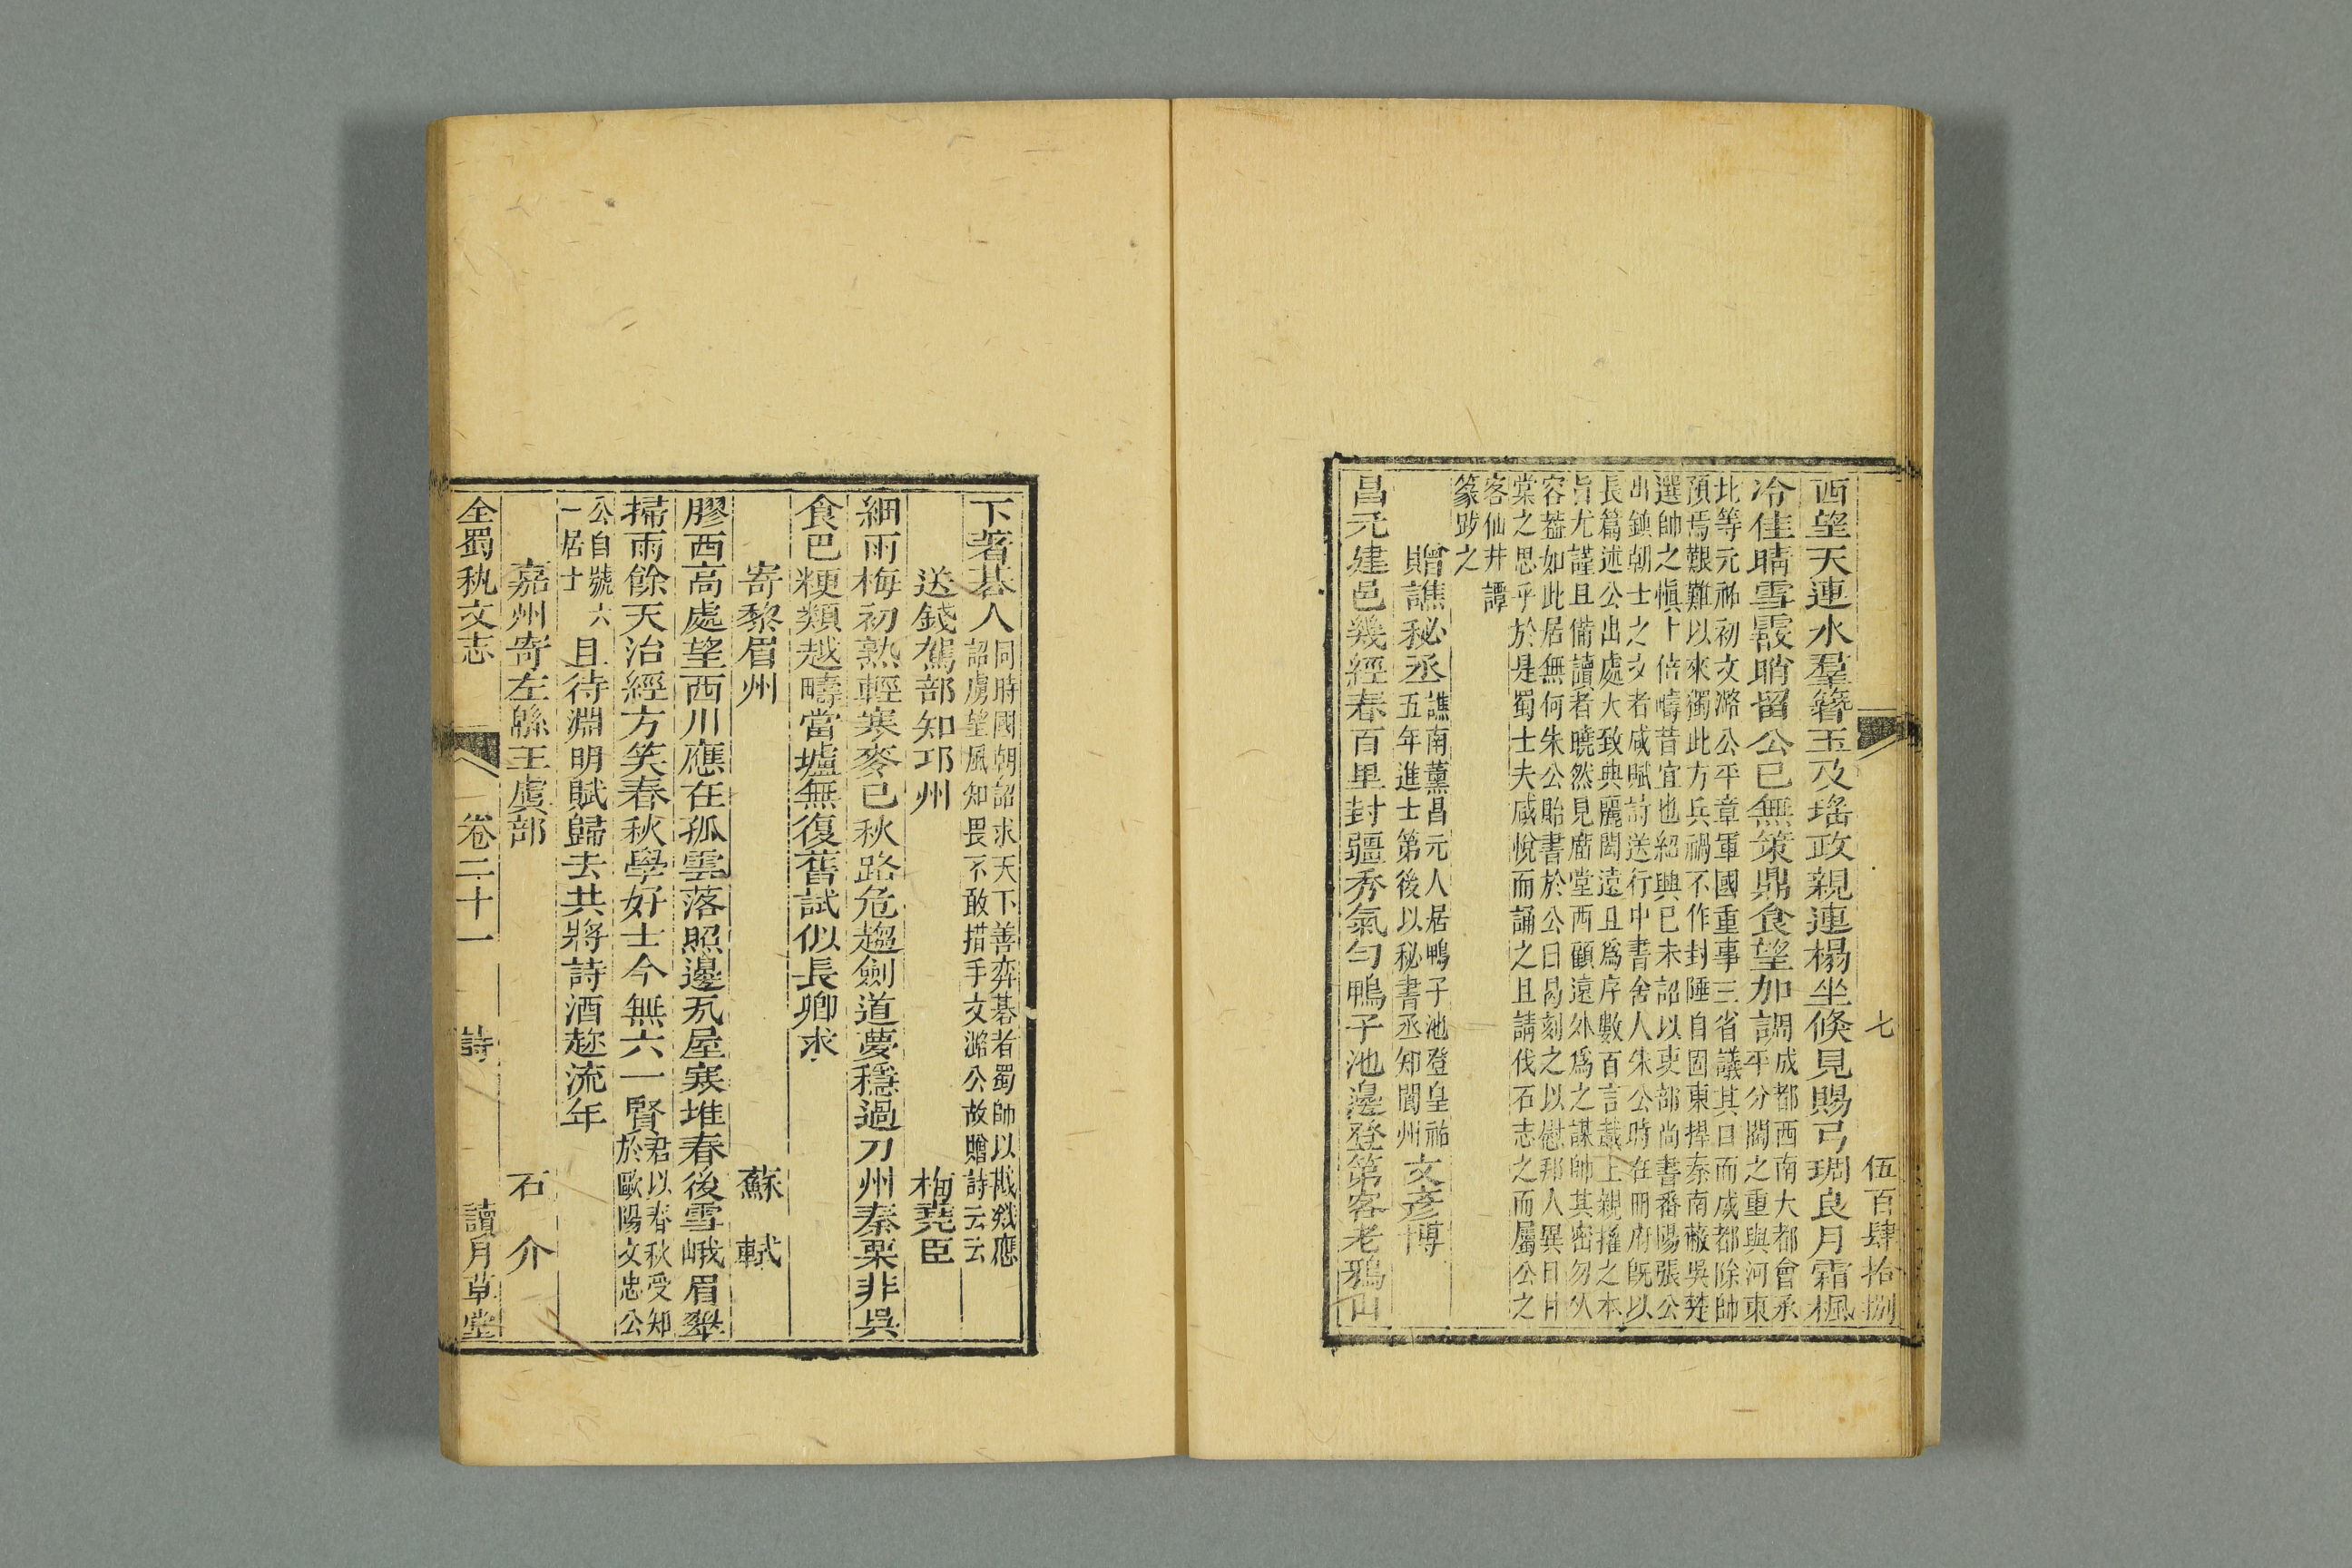 七　伍百肆拾捌
西望天連水羣簪玉及瑤政親連榻坐倐見賜弓琱良月霜楓
冷佳晴雪霰晴留公已無策鼎食望加調
成都西南大都會承
平分閫之重與河東
北等元祐初文潞公平章軍國重事三省議其日而成都除帥
預焉艱難以來獨此方兵禍不作封陲自固東捍秦南蔽吳楚
選帥之愼十倍疇昔宜也紹興已未詔以吏部尚書番陽張公
出鎭朝士之文者咸賦詩送行中書舍人朱公時在冊府旣以
長篇述公出處大致典麗閎遠且爲序數百言藏上親擢之本
旨尤謹且備讀者曉然見廟堂西顧遠外爲之謀帥其密勿从
容葢如此居無何朱公貽書於公曰曷刻之以慰邦人異日甘
棠之思乎於是蜀士夫咸悅而誦之且請伐石志之而屬公之
客仙井譚
篆跋之
贈譙秘丞
譙南薰昌元人居鴨子池登皇祐
五年進士第後以秘書丞知閬州
文彥博
昌元建邑幾經春百里封疆秀氣勻鴨子池邊登第客老鴉山
下著棊人
同時國朝詔求天下善弈棊者蜀師以戕戣應
詔虜望風知畏不敢措手文潞公故贈詩云云
送錢駕部知邛州　梅堯臣
細雨梅初熟輕寒麥已秋路危趨劍道夢穩過刀州秦栗非吳
食巴粳類越疇當壚無復舊試似長卿求
寄黎眉州　蘇軾
膠西高處望西川應在孤雲落照邊瓦屋寒堆春後雪峨眉翠
掃雨餘天治經方笑春秋學好士今無六一賢
君以春秋受知
於歐陽文忠公
公自號六
一居士
且待淵明賦歸去共將詩酒趂流年
嘉州寄左緜王虞部　石介
全蜀秇文志　卷二十一　詩　讀月草堂